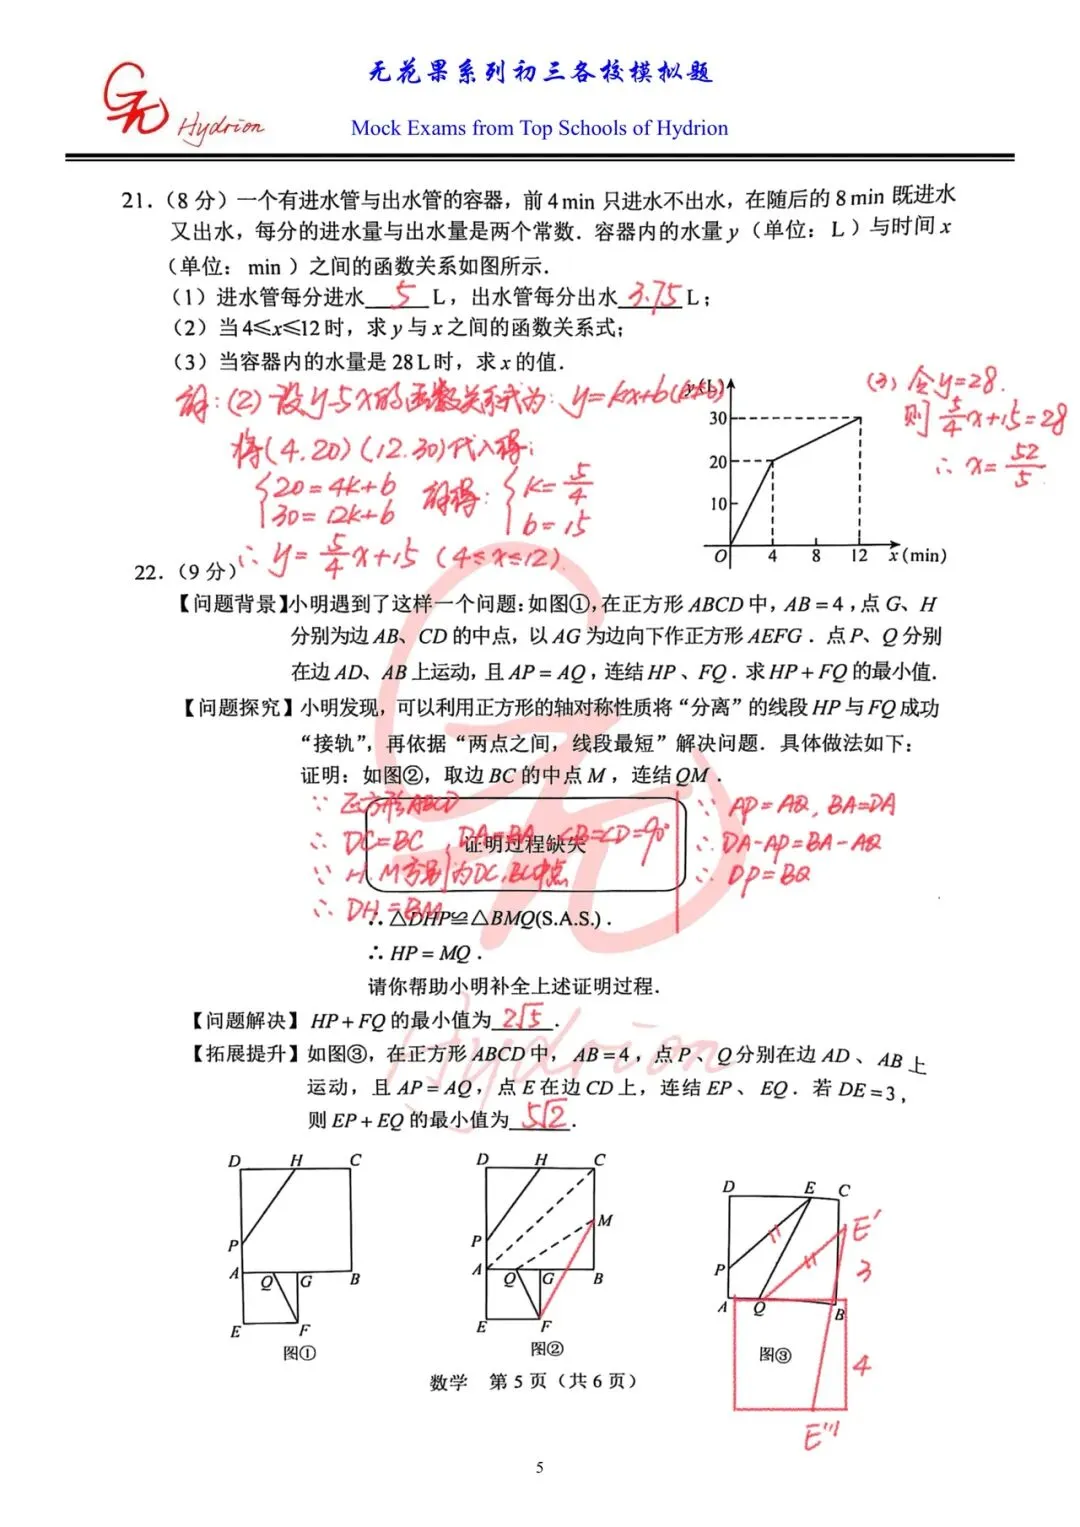 无花果系列初三各校模拟题
Hydrion
Mock Exams from Top Schools of Hydrion
21.（8 分）一个有进水管与出水管的容器，前 4 min 只进水不出水，在随后的 8 min 既进水
又出水，每分的进水量与出水量是两个常数．容器内的水量 y（单位：L）与时间 x
（单位：min）之间的函数关系如图所示．
（1）进水管每分进水 5 L，出水管每分出水 3.75 L；
（2）当 4≤x≤12 时，求 y 与 x 之间的函数关系式；
（3）当容器内的水量是 28 L 时，求 x 的值．
解：(2) 设 y与x的函数关系式为：y=kx+b(k≠0)
将(4.20)(12.30)代入得：
{20=4k+b
30=12k+b
解得：{k=5/4
b=15
∴ y=5/4x+15 (4≤x≤12)
(3) 令y=28.
则 5/4x+15=28
∴ x=52/5
y(L)
30
20
10
O 4 8 12 x(min)
22.（9 分）
【问题背景】小明遇到了这样一个问题：如图①，在正方形 ABCD 中，AB＝4，点 G、H
分别为边 AB、CD 的中点，以 AG 为边向下作正方形 AEFG．点 P、Q 分别
在边 AD、AB 上运动，且 AP＝AQ，连结 HP、FQ．求 HP＋FQ 的最小值．
【问题探究】小明发现，可以利用正方形的轴对称性质将“分离”的线段 HP 与 FQ 成功
“接轨”，再依据“两点之间，线段最短”解决问题．具体做法如下：
证明：如图②，取边 BC 的中点 M，连结 QM．
∵ 正方形ABCD
∴ DC=BC，DA=BA ∠B=∠D=90°
证明过程缺失
∵ H.M分别为DC,BC中点
∴ DH=BM
∵ AP=AQ，BA=DA
∴ DA-AP=BA-AQ
∴ DP=BQ
∴ △DHP≌△BMQ(S.A.S.)．
∴ HP＝MQ．
请你帮助小明补全上述证明过程．
【问题解决】HP＋FQ 的最小值为 2√5 ．
【拓展提升】如图③，在正方形 ABCD 中，AB＝4，点 P、Q 分别在边 AD、AB 上
运动，且 AP＝AQ，点 E 在边 CD 上，连结 EP、EQ．若 DE＝3，
则 EP＋EQ 的最小值为 5√2 ．
D H C
P
A Q G B
E F
图①
D H C
M
P
A Q G B
E F
图②
D E C
E'
P
3
A Q B
图③
4
E'''
数学 第 5 页（共 6 页）
5
Hydrion